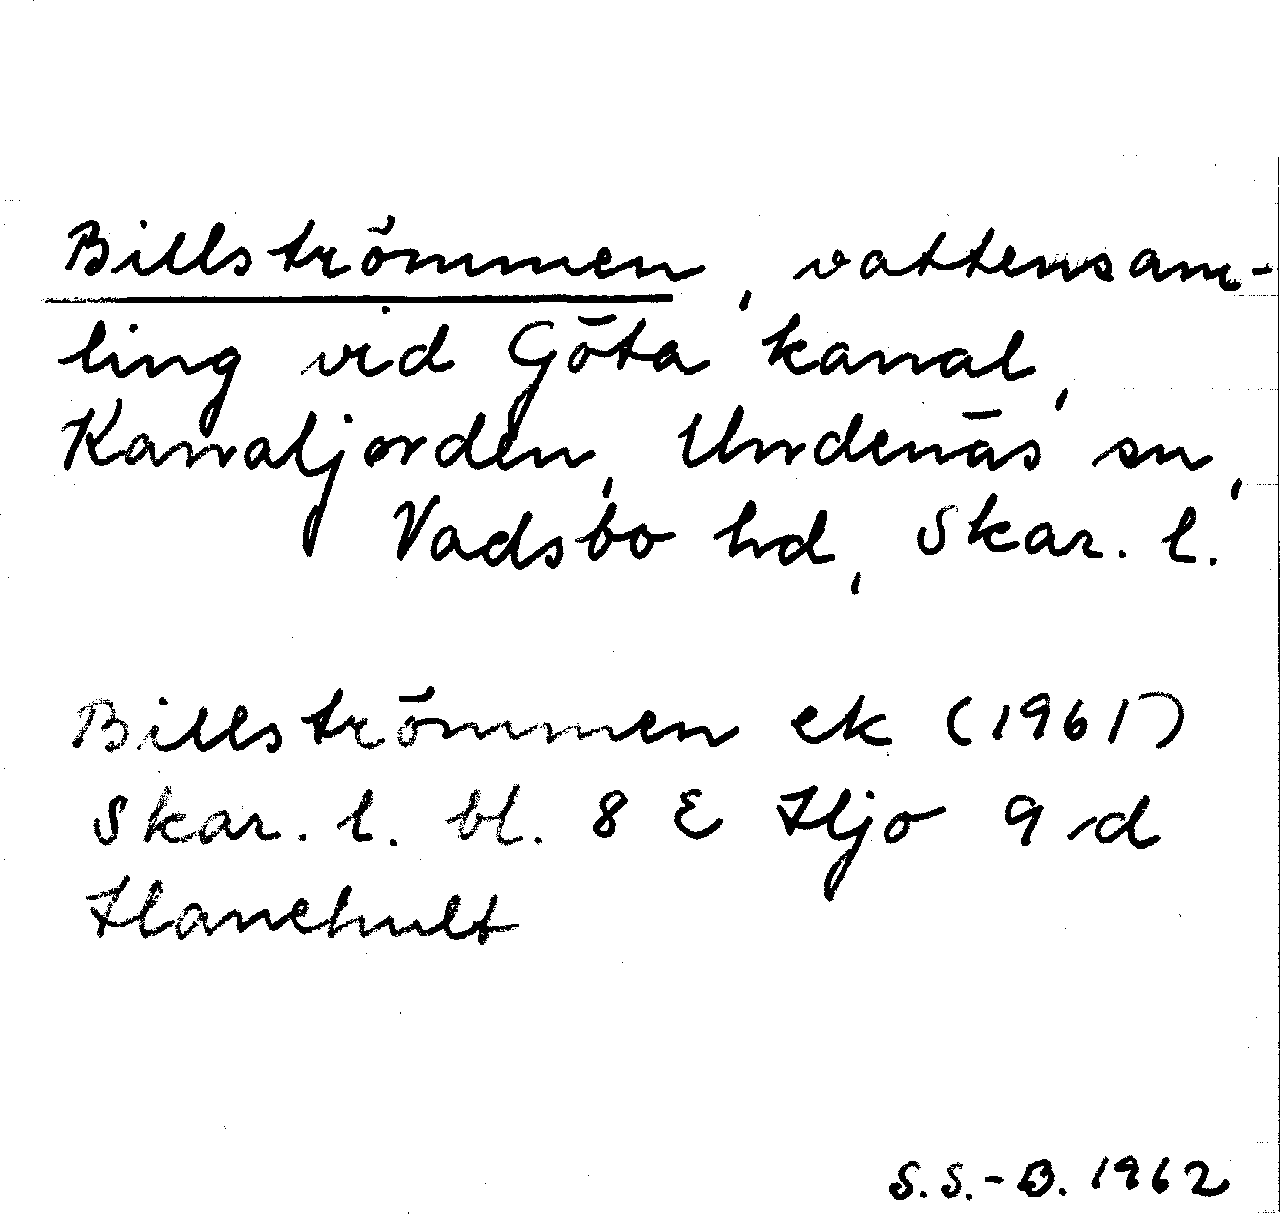 Billströmmen, vattensam-
ling vid Göta kanal,
Kanaljorden, Undenäs sn,
Vadsbo hd, Skar. l.
Billströmmen ek (1961)
Skar. l. bl. 8 E Hjo 9 d
Hanehult
S. S.-B. 1962